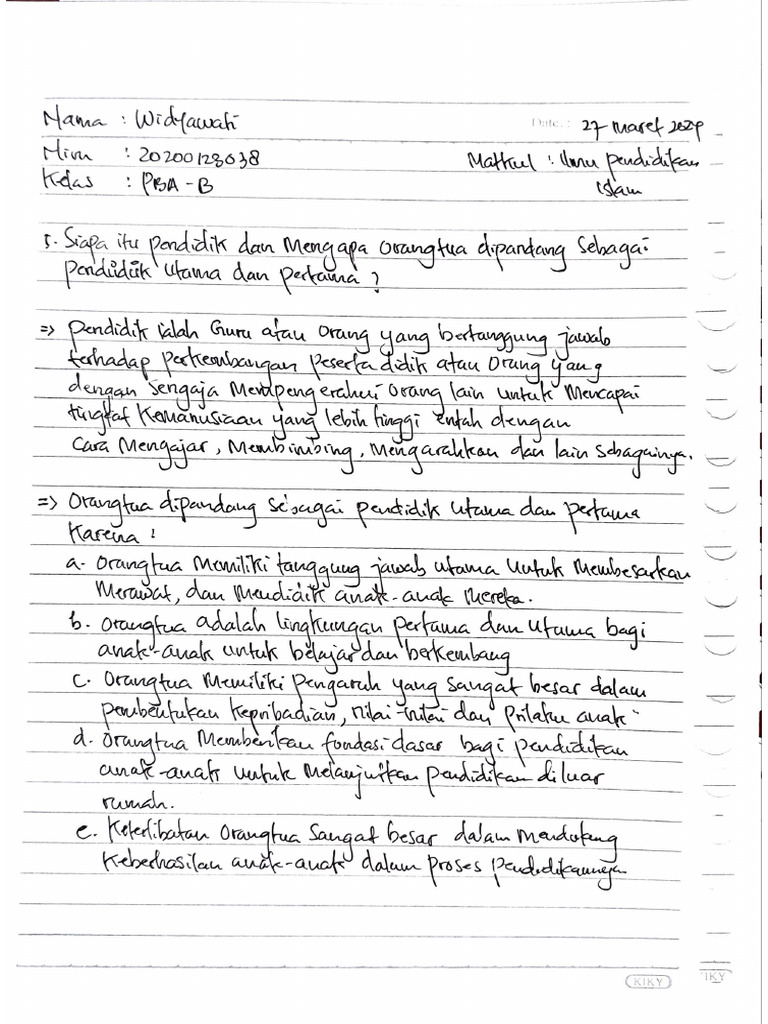 Nama : Widyawati
Date.: 27 maret 2024
Nim : 20200128038
Matkul : Ilmu pendidikan
Islam
Kelas : PBA - B
5. Siapa itu pendidik dan Mengapa Orangtua dipandang Sebagai
pendidik Utama dan pertama ?
=> pendidik ialah Guru atau Orang yang bertanggung jawab
terhadap perkembangan peserta didik atau Orang yang
dengan Sengaja Mempengerahui Orang lain untuk Mencapai
tingkat Kemanusiaan yang lebih tinggi entah dengan
Cara Mengajar, Membimbing, Mengarahkan dan lain Sebagainya.
=> Orangtua dipandang Sebagai pendidik Utama dan pertama
Karena :
a. Orangtua Memiliki tanggung jawab Utama Untuk Membesarkan
Merawat, dan Mendidik anak-anak Mereka.
b. Orangtua adalah lingkungan pertama dan Utama bagi
anak-anak untuk belajar dan berkembang
c. Orangtua Memiliki Pengaruh yang sangat besar dalam
pembentukan kepribadian, nilai-nilai dan prilaku anak
d. Orangtua Memberikan fondasi dasar bagi pendidikan
anak-anak untuk Melanjutkan pendidikan diluar
rumah.
e. Keterlibatan Orangtua Sangat besar dalam Mendukung
Keberhasilan anak-anak dalam proses pendidikannya
KIKY
IKY